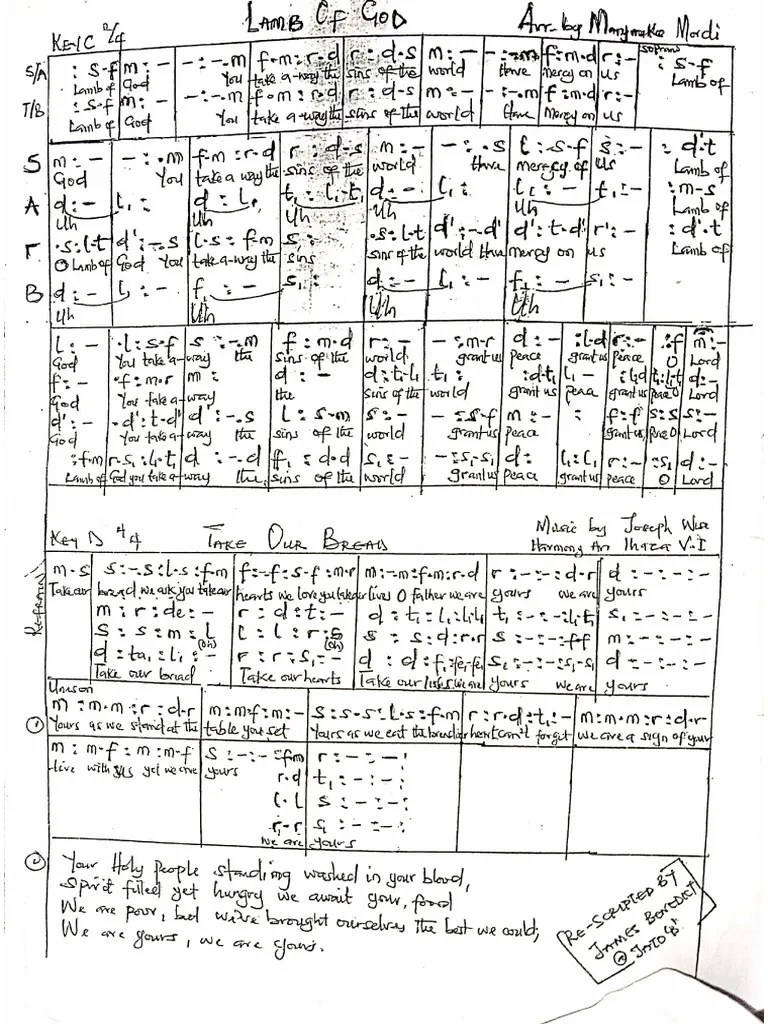 LAMB OF GOD
Key C 2/4
Arr. by Mordi
Soprano
S/A : s-f m : - - : - . m f . m : r . d r : d . s m : - - : - . m f : m . d r : - : s - f
Lamb of God You take a-way the sins of the world Have mercy on us Lamb of
T/B : s-f m : - - : - . m f . m : r . d r : d - s m : - - : - . m f : m . d r : -
Lamb of God You take a-way the sins of the world Have mercy on us
S m : - - : . m f . m : r . d r : d . s m : - - : . s l : s . f s : - : d' . t
God You take a way the sins of the world Have mercy of us Lamb of
A d : - l₁ : d : l₁ t₁ : l₁ . t₁ d : - l₁ : l₁ : - t₁ : - : m - s
Uh Uh Uh Uh Uh Lamb of
T . s : l . t d' : - . s l . s : f . m s : . s : l . t d' : - . d' d' : t . d' r' : - : d' . t
O Lamb of God You take a-way the sins sins of the world Have mercy on us Lamb of
B d : - l₁ : - f₁ : - s₁ : d : - l₁ : - f₁ : - s₁ : -
Uh Uh Uh Uh
l : - . l : s . f s : - . m f : m . d r : - - : m . r d : - : l . d r : - : f m : -
God You take a-way the sins of the world grant us peace grant us peace O Lord
f : - . f : m . r m : d : - d : t₁ . l₁ t₁ : : d . t₁ l₁ - d : -
God You take a-way the sins of the world grant us peace grant us peace O Lord
d' : - . d' : t . d' d' : - . s l : s - m s : - - : s . f m : - : f : f s : s s : -
God You take a-way the sins of the world grant us peace grant us peace O Lord
: f . m r . s₁ : l₁ . t₁ d : - . d f₁ : d . d s₁ : - - : s₁ . s₁ d : l₁ : l₁ r : - : s₁ d : -
Lamb of God you take a-way the sins of the world grant us peace grant us peace O Lord
Key D 4/4
TAKE OUR BREAD
Music by Joseph Wise
Harmony Arr Ihaza V. I
Refrain
m . s s : - . s : l . s : f . m f : - . f : s . f : m . r m : - . m : f . m : r . d r : - : - : d . r d : - : - : -
Take our bread we ask you take our hearts we love you take our lives O father we are yours we are yours
m : r : de : - r : d : t : - d : t₁ : l₁ : l₁ . l₁ t₁ : - : - : l₁ . t₁ s₁ : - : - : -
s : s : m : l l : l : r : s s : s : d : r . r s : - : - : f f m : - : - : -
(Oh) (Oh)
d : ta₁ : l₁ : - r : r : s₁ : - d : d : f₁ : fe₁ . fe₁ s₁ : - : - : s₁ . s₁ d : - : - : -
Take our bread Take our hearts Take our lives we are yours we are yours
Unison
① m : m . m : r : d . r m : m . f : m : - s : s . s : l . s : f . m r : r . d : t₁ : - m : m . m : r : d . r
Yours as we stand at the table you set Yours as we eat the bread our heart can't forget we are a sign of your
m : m . f : m : m . f s : - : - : f . m r : - : - : -
live with us yet we are yours
r . d t₁ : - : - :
l . l s : - : - : -
r . r s₁ : - : - :
we are yours
② Your Holy people standing washed in your blood,
Spirit filled yet hungry we await your food
We are poor, but we've brought ourselves the best we could;
We are yours, we are yours.
RE-SCRIPTED BY
JAMES BENEDICT